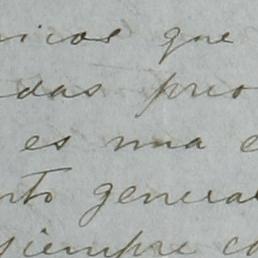 nicos que
das prio
es una e
nto general
siempre co